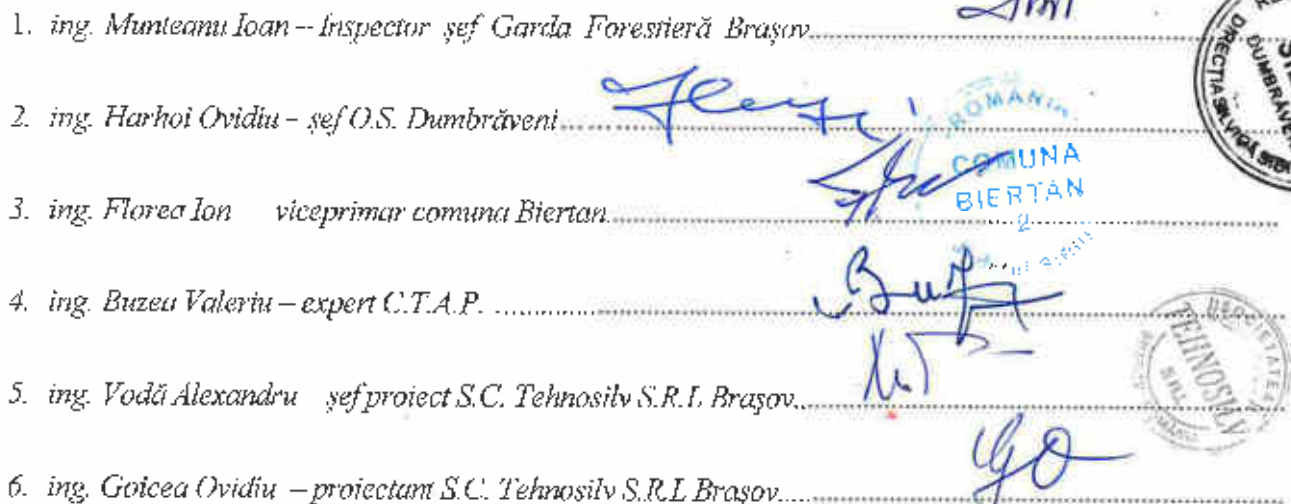 1. ing. Munteanu Ioan – Inspector șef Garda Forestieră Brașov
2. ing. Harhoi Ovidiu – șef O.S. Dumbrăveni
ROMÂNIA
COMUNA
BIERTAN
2
3. ing. Florea Ion viceprimar comuna Biertan
4. ing. Buzea Valeriu – expert C.T.A.P.
5. ing. Vodă Alexandru șef proiect S.C. Tehnosilv S.R.L Brașov
6. ing. Goicea Ovidiu – proiectant S.C. Tehnosilv S.R.L Brașov
DIRECȚIA SILVICĂ SIBIU
DUMBRĂVENI
SOCIETATEA
TEHNOSILV
SRL